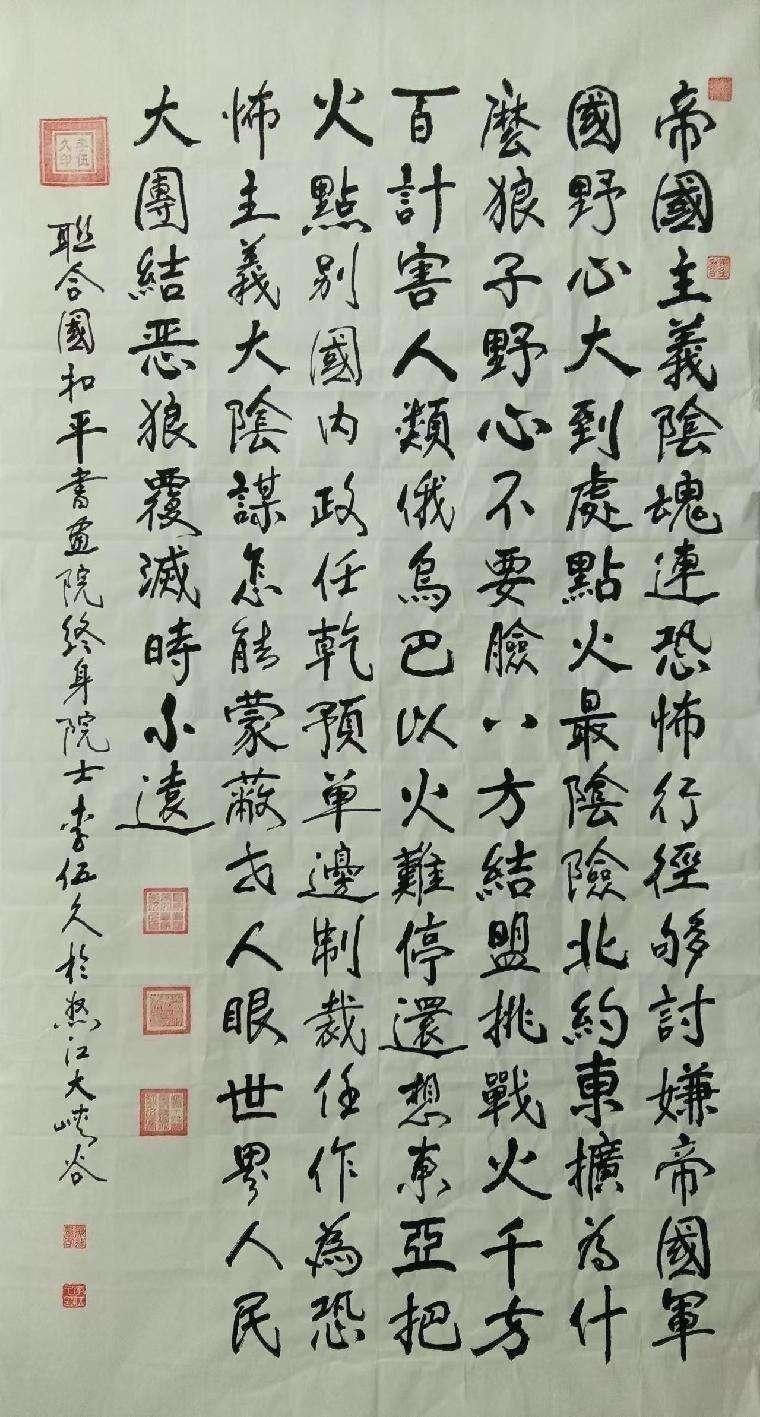 帝國主義陰魂連恐怖行徑够討嫌帝國軍
國野心大到處點火最陰險北約東擴為什
麼狼子野心不要臉八方結盟挑戰火千方
百計害人類俄烏巴以火難停還想东亞把
火點别國内政任乾預单邊制裁任作為恐
怖主義大陰謀怎能蒙蔽人眼世界人民
大團結恶狼覆滅時不遠
聯合國和平書畫院终身院士李伍久於怒江大峽谷
李伍久印